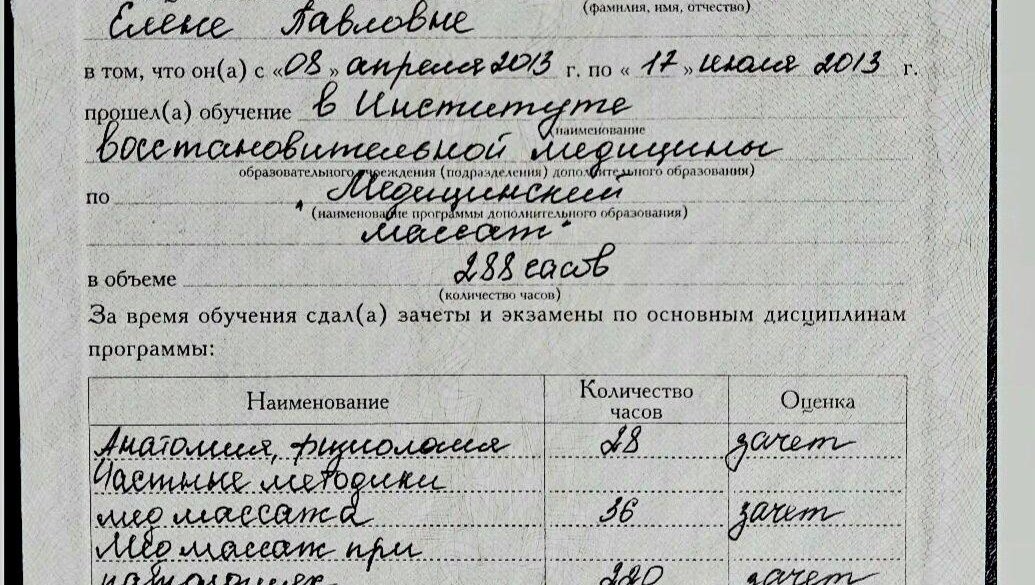 (фамилия, имя, отчество)
Елене Павловне
в том, что он(а) с «08» апреля 2013 г. по «17» июля 2013 г.
прошел(а) обучение в Институте
наименование
восстановительной медицины
образовательного учреждения (подразделения) дополнительного образования)
по „Медицинский
(наименование программы дополнительного образования)
массаж“
в объеме 288 часов
(количество часов)
За время обучения сдал(а) зачеты и экзамены по основным дисциплинам
программы:
Наименование Количество часов Оценка
Анатомия, физиология 28 зачет
Частные методики
мед массажа 36 зачет
Мед массаж при
патологиях 220 зачет